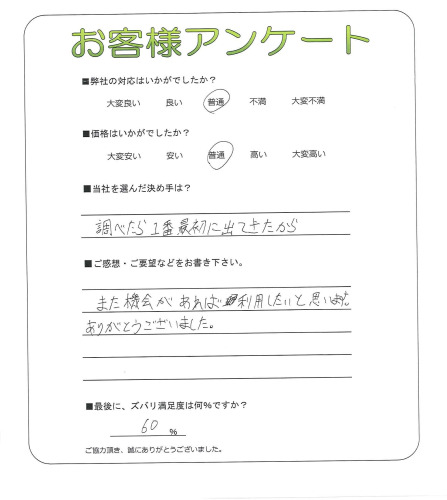 お客様アンケート
■弊社の対応はいかがでしたか？
大変良い 良い 普通 不満 大変不満
■価格はいかがでしたか？
大変安い 安い 普通 高い 大変高い
■当社を選んだ決め手は？
調べたら1番最初に出てきたから
■ご感想・ご要望などをお書き下さい。
また機会があれば利用したいと思います。
ありがとうございました。
■最後に、ズバリ満足度は何%ですか？
60 %
ご協力頂き、誠にありがとうございました。